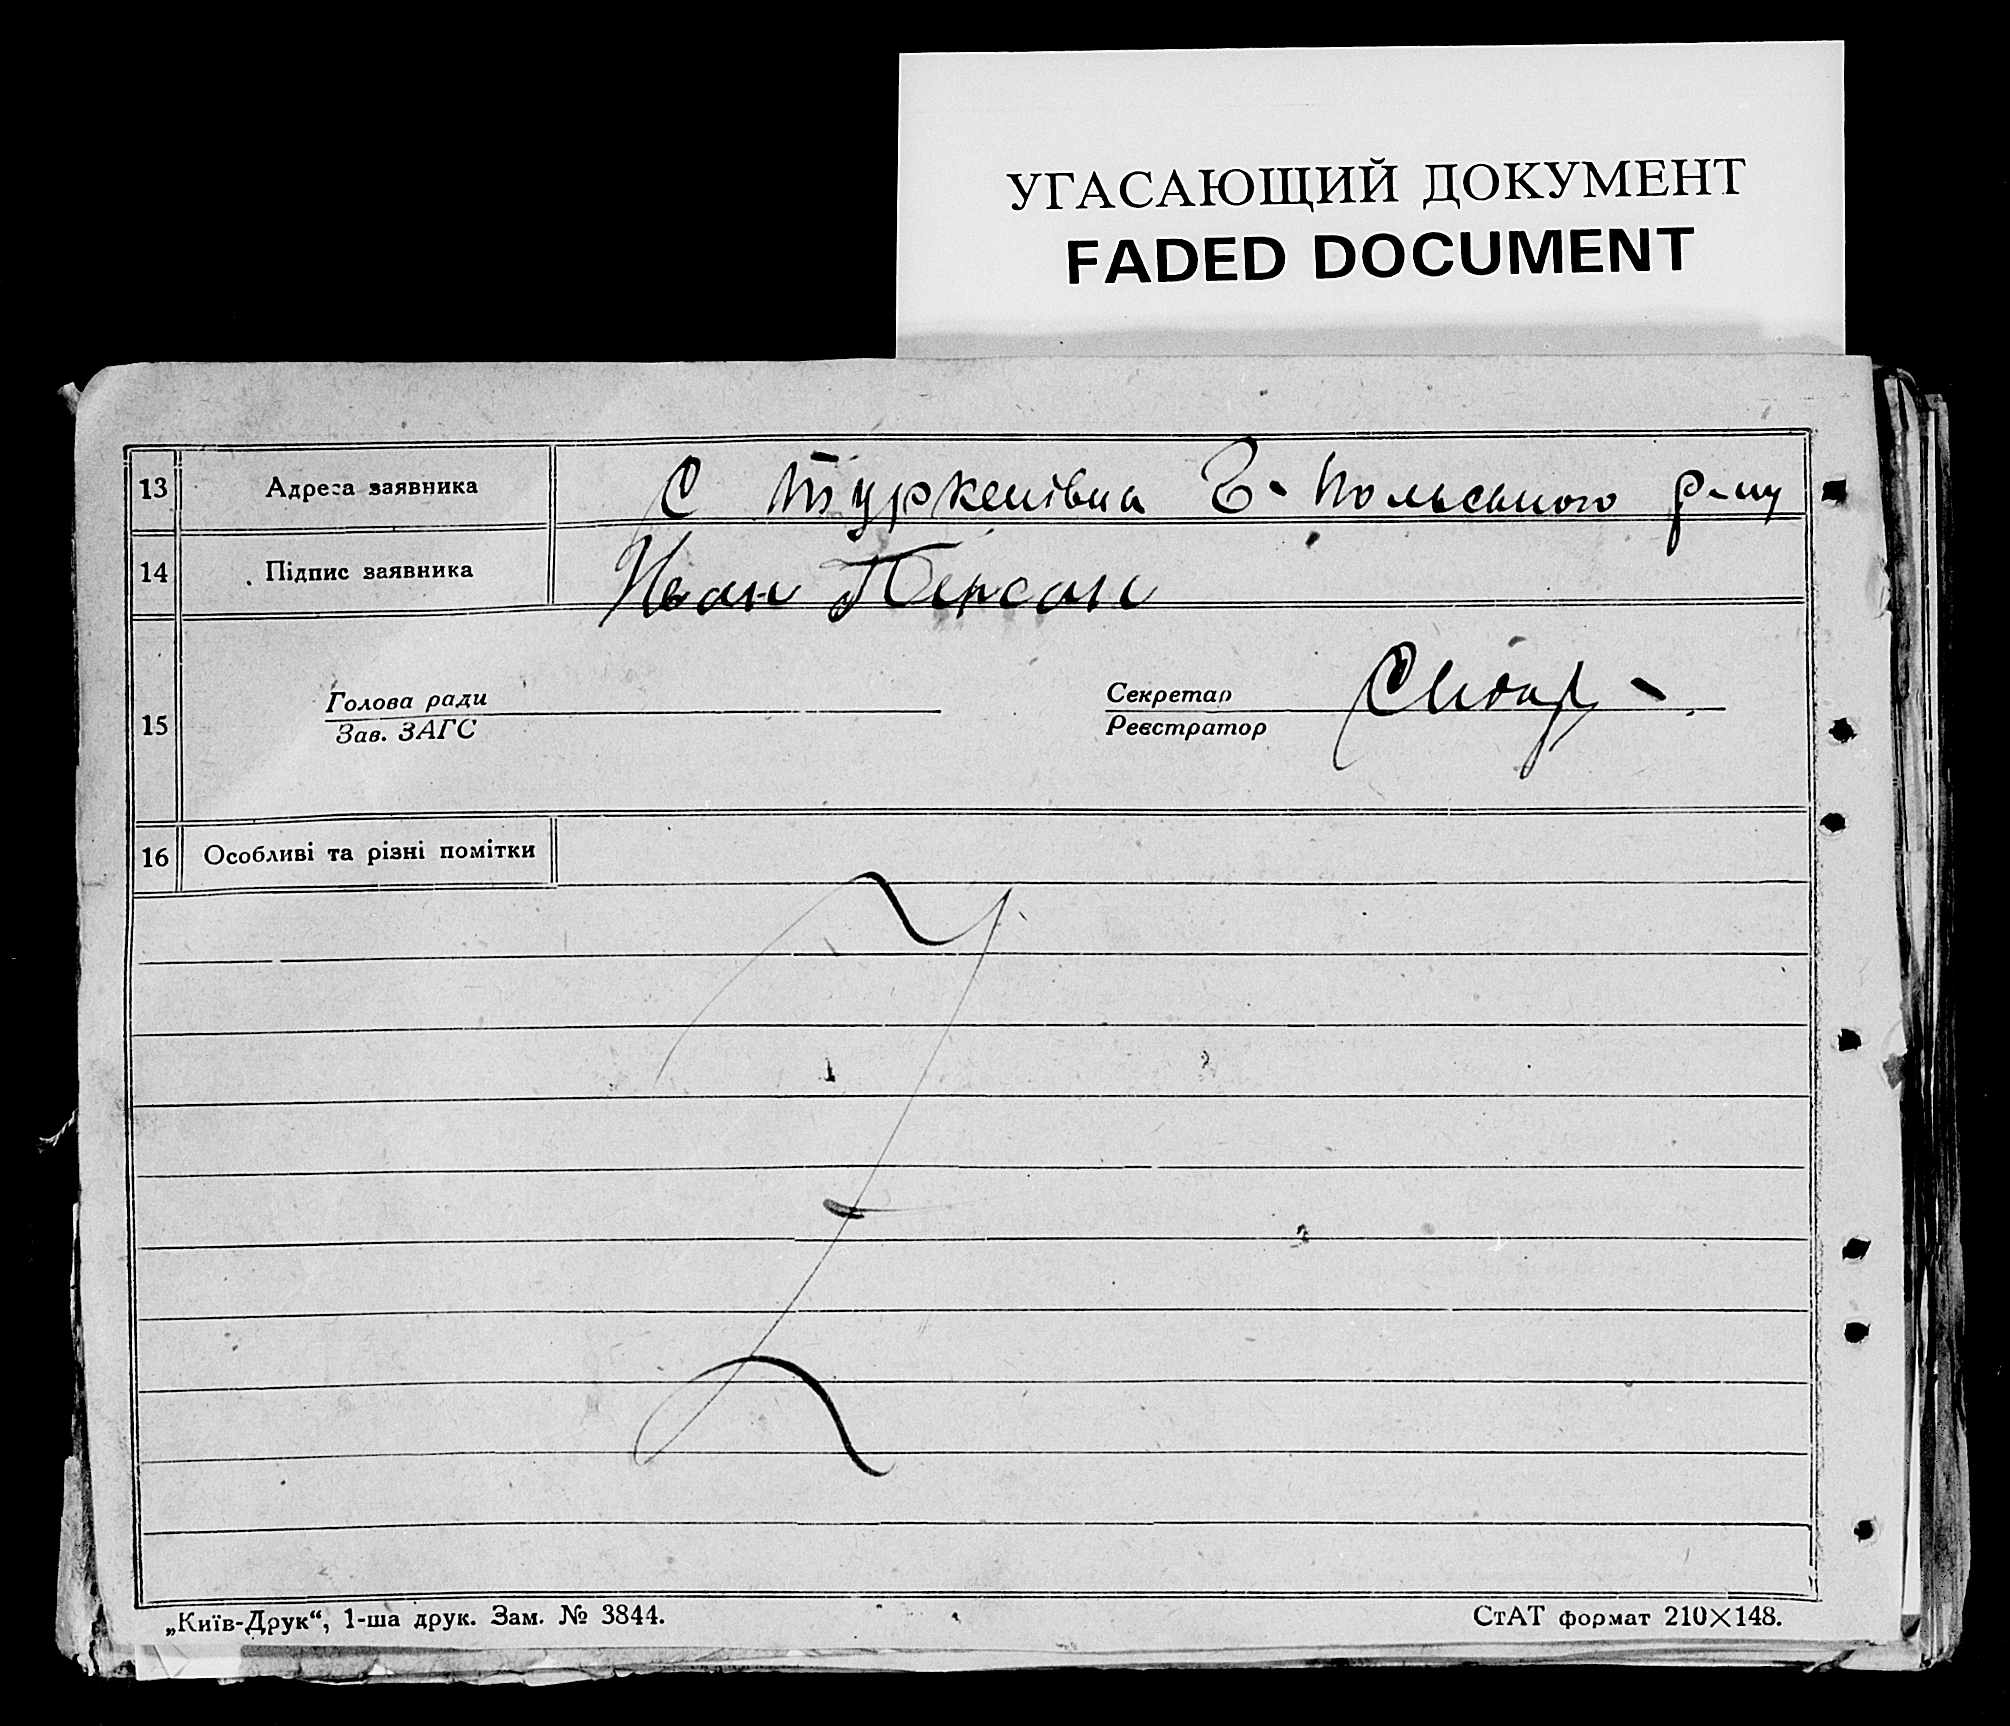 УГАСАЮЩИЙ ДОКУМЕНТ
FADED DOCUMENT
13 Адреса заявника С Туркенівка Г-Польського р-ну
14 Підпис заявника Иван
Голова ради Секретар
15
Зав. ЗАГС Реєстратор
16 Особливі та різні помітки
„Київ-Друк“, 1-ша друк. Зам. № 3844. СтАТ формат 210×148.